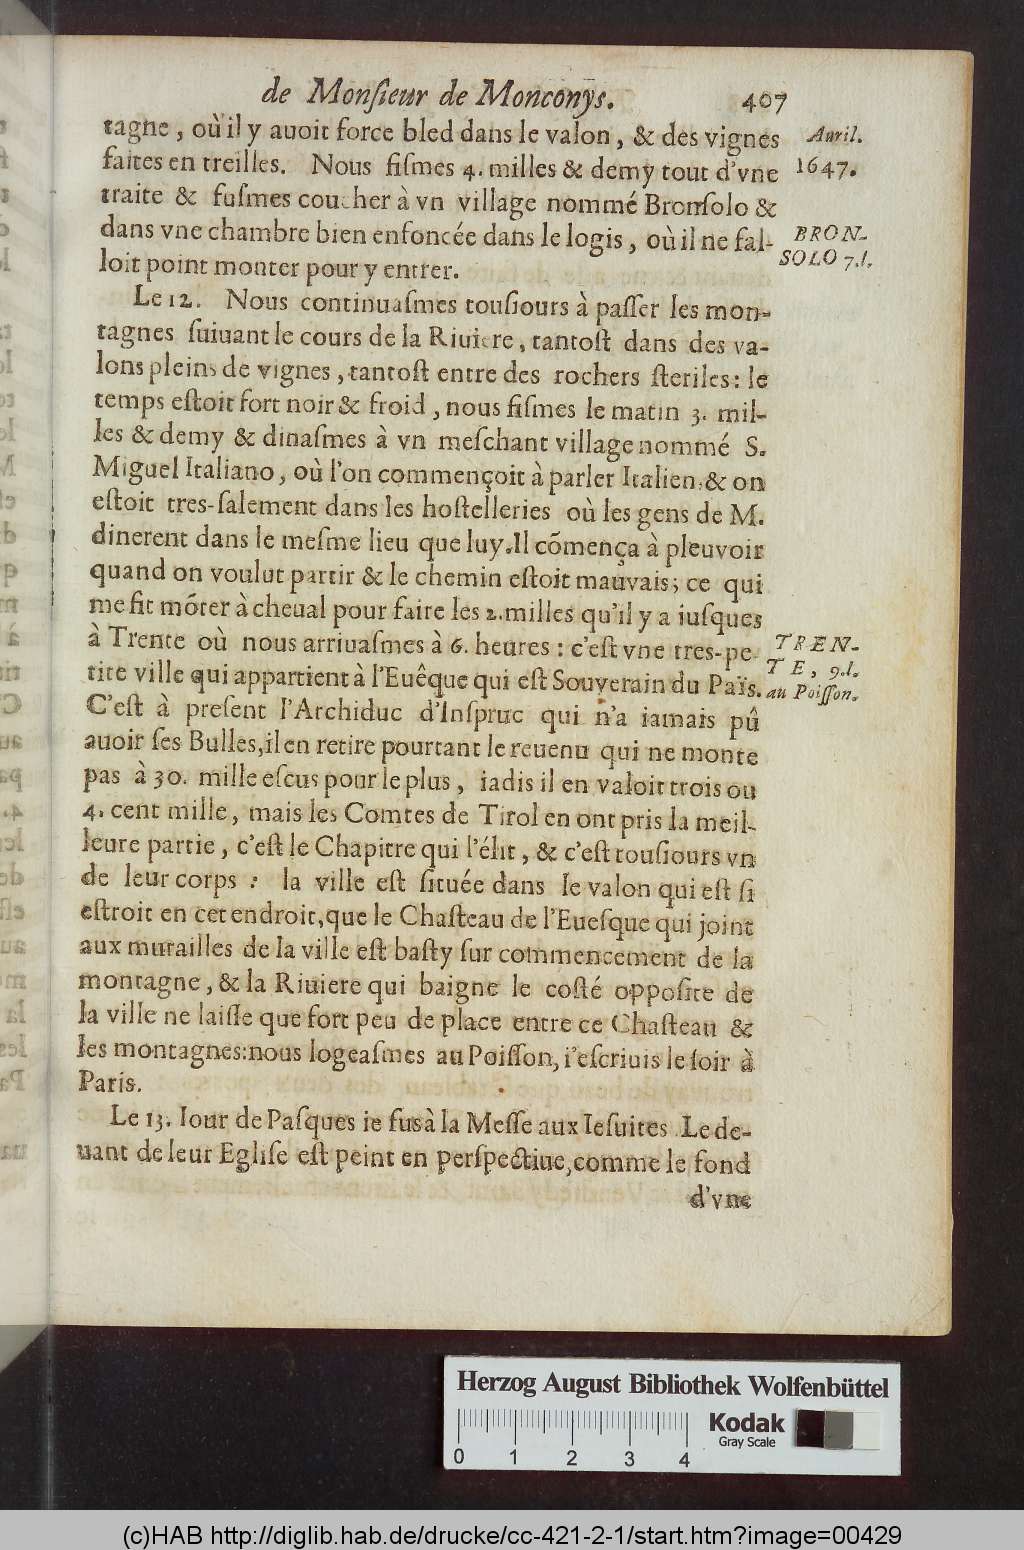 de Monſieur de Monconÿs. 407
tagne, où il y auoit force bled dans le valon, & des vignes
Auril.
faites en treilles. Nous fiſmes 4. milles & demy tout d'vne
1647.
traite & fuſmes coucher à vn village nommé Bronſolo &
dans vne chambre bien enfoncée dans le logis, où il ne fal-
BRON-
loit point monter pour y entrer.
SOLO 7.l.
Le 12. Nous continuaſmes touſiours à paſſer les mon-
tagnes ſuiuant le cours de la Riuiere, tantoſt dans des va-
lons pleins de vignes, tantoſt entre des rochers ſteriles: le
temps eſtoit fort noir & froid, nous fiſmes le matin 3. mil-
les & demy & dinaſmes à vn meſchant village nommé S.
Miguel Italiano, où l'on commençoit à parler Italien, & on
eſtoit tres-ſalement dans les hoſtelleries où les gens de M.
dinerent dans le meſme lieu que luy. Il cõmença à pleuvoir
quand on voulut partir & le chemin eſtoit mauvais; ce qui
me fit mõter à cheual pour faire les 2. milles qu'il y a iuſques
à Trente où nous arriuaſmes à 6. heures: c'eſt vne tres-pe-
TREN-
tite ville qui appartient à l'Euêque qui eſt Souverain du Païs.
TE, 9.l.
au Poiſſon.
C'eſt à preſent l'Archiduc d'Inſpruc qui n'a iamais pû
auoir ſes Bulles, il en retire pourtant le reuenu qui ne monte
pas à 30. mille eſcus pour le plus, iadis il en valoit trois ou
4. cent mille, mais les Comtes de Tirol en ont pris la meil-
leure partie, c'eſt le Chapitre qui l'élit, & c'eſt touſiours vn
de leur corps: la ville eſt ſituée dans le valon qui eſt ſi
eſtroit en cet endroit, que le Chaſteau de l'Eueſque qui joint
aux murailles de la ville eſt baſty ſur commencement de la
montagne, & la Riuiere qui baigne le coſté oppoſite de
la ville ne laiſſe que fort peu de place entre ce Chaſteau &
les montagnes: nous logeaſmes au Poiſſon, i'eſcriuis le ſoir à
Paris.
Le 13. Iour de Paſques ie fus à la Meſſe aux Ieſuites. Le de-
uant de leur Egliſe eſt peint en perſpectiue, comme le fond
d'vne
Herzog August Bibliothek Wolfenbüttel
Kodak
Gray Scale
0 1 2 3 4
(c)HAB http://diglib.hab.de/drucke/cc-421-2-1/start.htm?image=00429